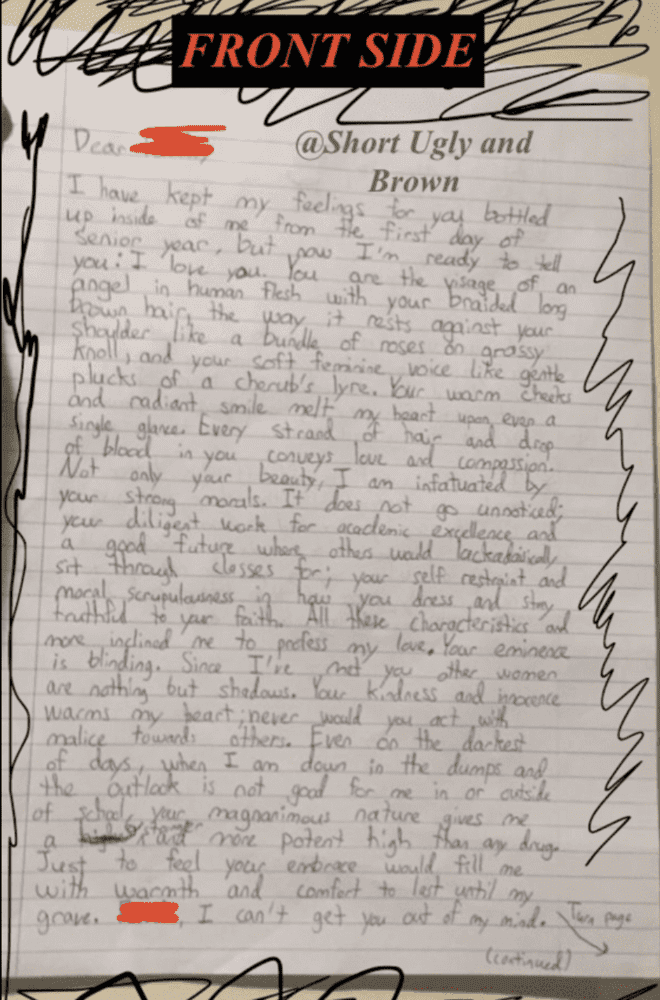 FRONT SIDE
Dear
@Short Ugly and
Brown
I have kept my feelings for you bottled
up inside of me from the first day of
senior year, but now I'm ready to tell
you: I love you. You are the visage of an
angel in human flesh with your braided long
brown hair, the way it rests against your
shoulder like a bundle of roses on grassy
knoll, and your soft feminine voice like gentle
plucks of a cherub's lyre. Your warm cheeks
and radiant smile melt my heart upon even a
single glance. Every strand of hair and drop
of blood in you conveys love and compassion.
Not only your beauty, I am infatuated by
your strong morals. It does not go unnoticed;
your diligent work for academic excellence and
a good future where others would lackadaisically
sit through classes for; your self restraint and
moral scrupulousness in how you dress and stay
truthful to your faith. All these characteristics and
more inclined me to profess my love. Your eminence
is blinding. Since I've met you other women
are nothing but shadows. Your kindness and innocence
warms my heart; never would you act with
malice towards others. Even on the darkest
of days, when I am down in the dumps and
the outlook is not good for me in or outside
of school, your magnanimous nature gives me
a stronger and more potent high than any drug.
Just to feel your embrace would fill me
with warmth and comfort to last until my
grave. , I can't get you out of my mind. Turn page
(continued)